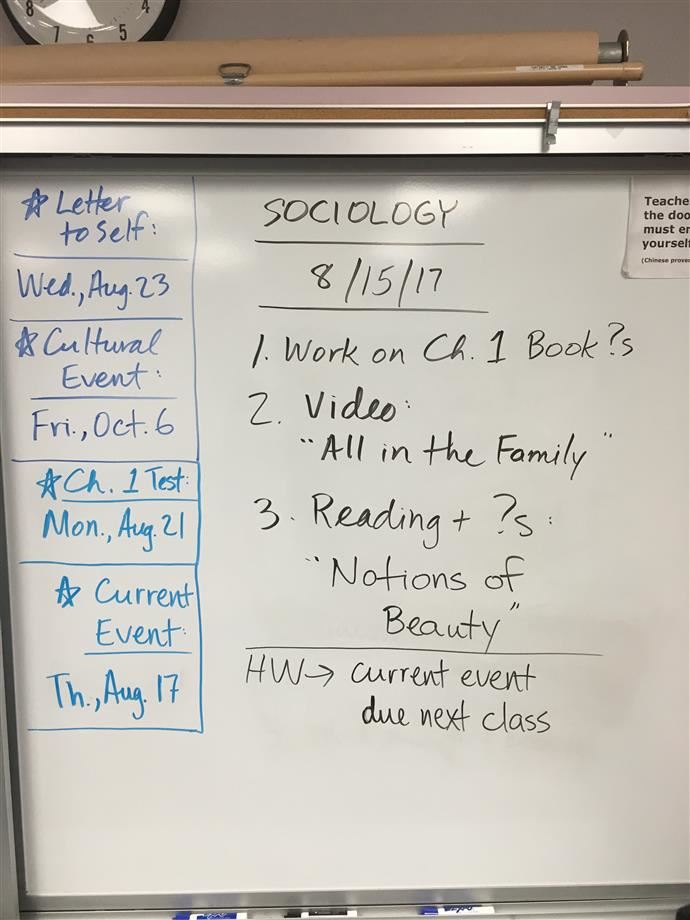 8 7 6 5 4
☆ Letter
to Self:
Wed., Aug. 23
☆ Cultural
Event:
Fri., Oct. 6
☆ Ch. 1 Test:
Mon., Aug. 21
☆ Current
Event:
Th., Aug. 17
SOCIOLOGY
8/15/17
1. Work on Ch. 1 Book ?s
2. Video:
"All in the Family"
3. Reading + ?s:
"Notions of
Beauty"
HW→ current event
due next class
Teache
the doo
must en
yourself
(Chinese prove
EXPO